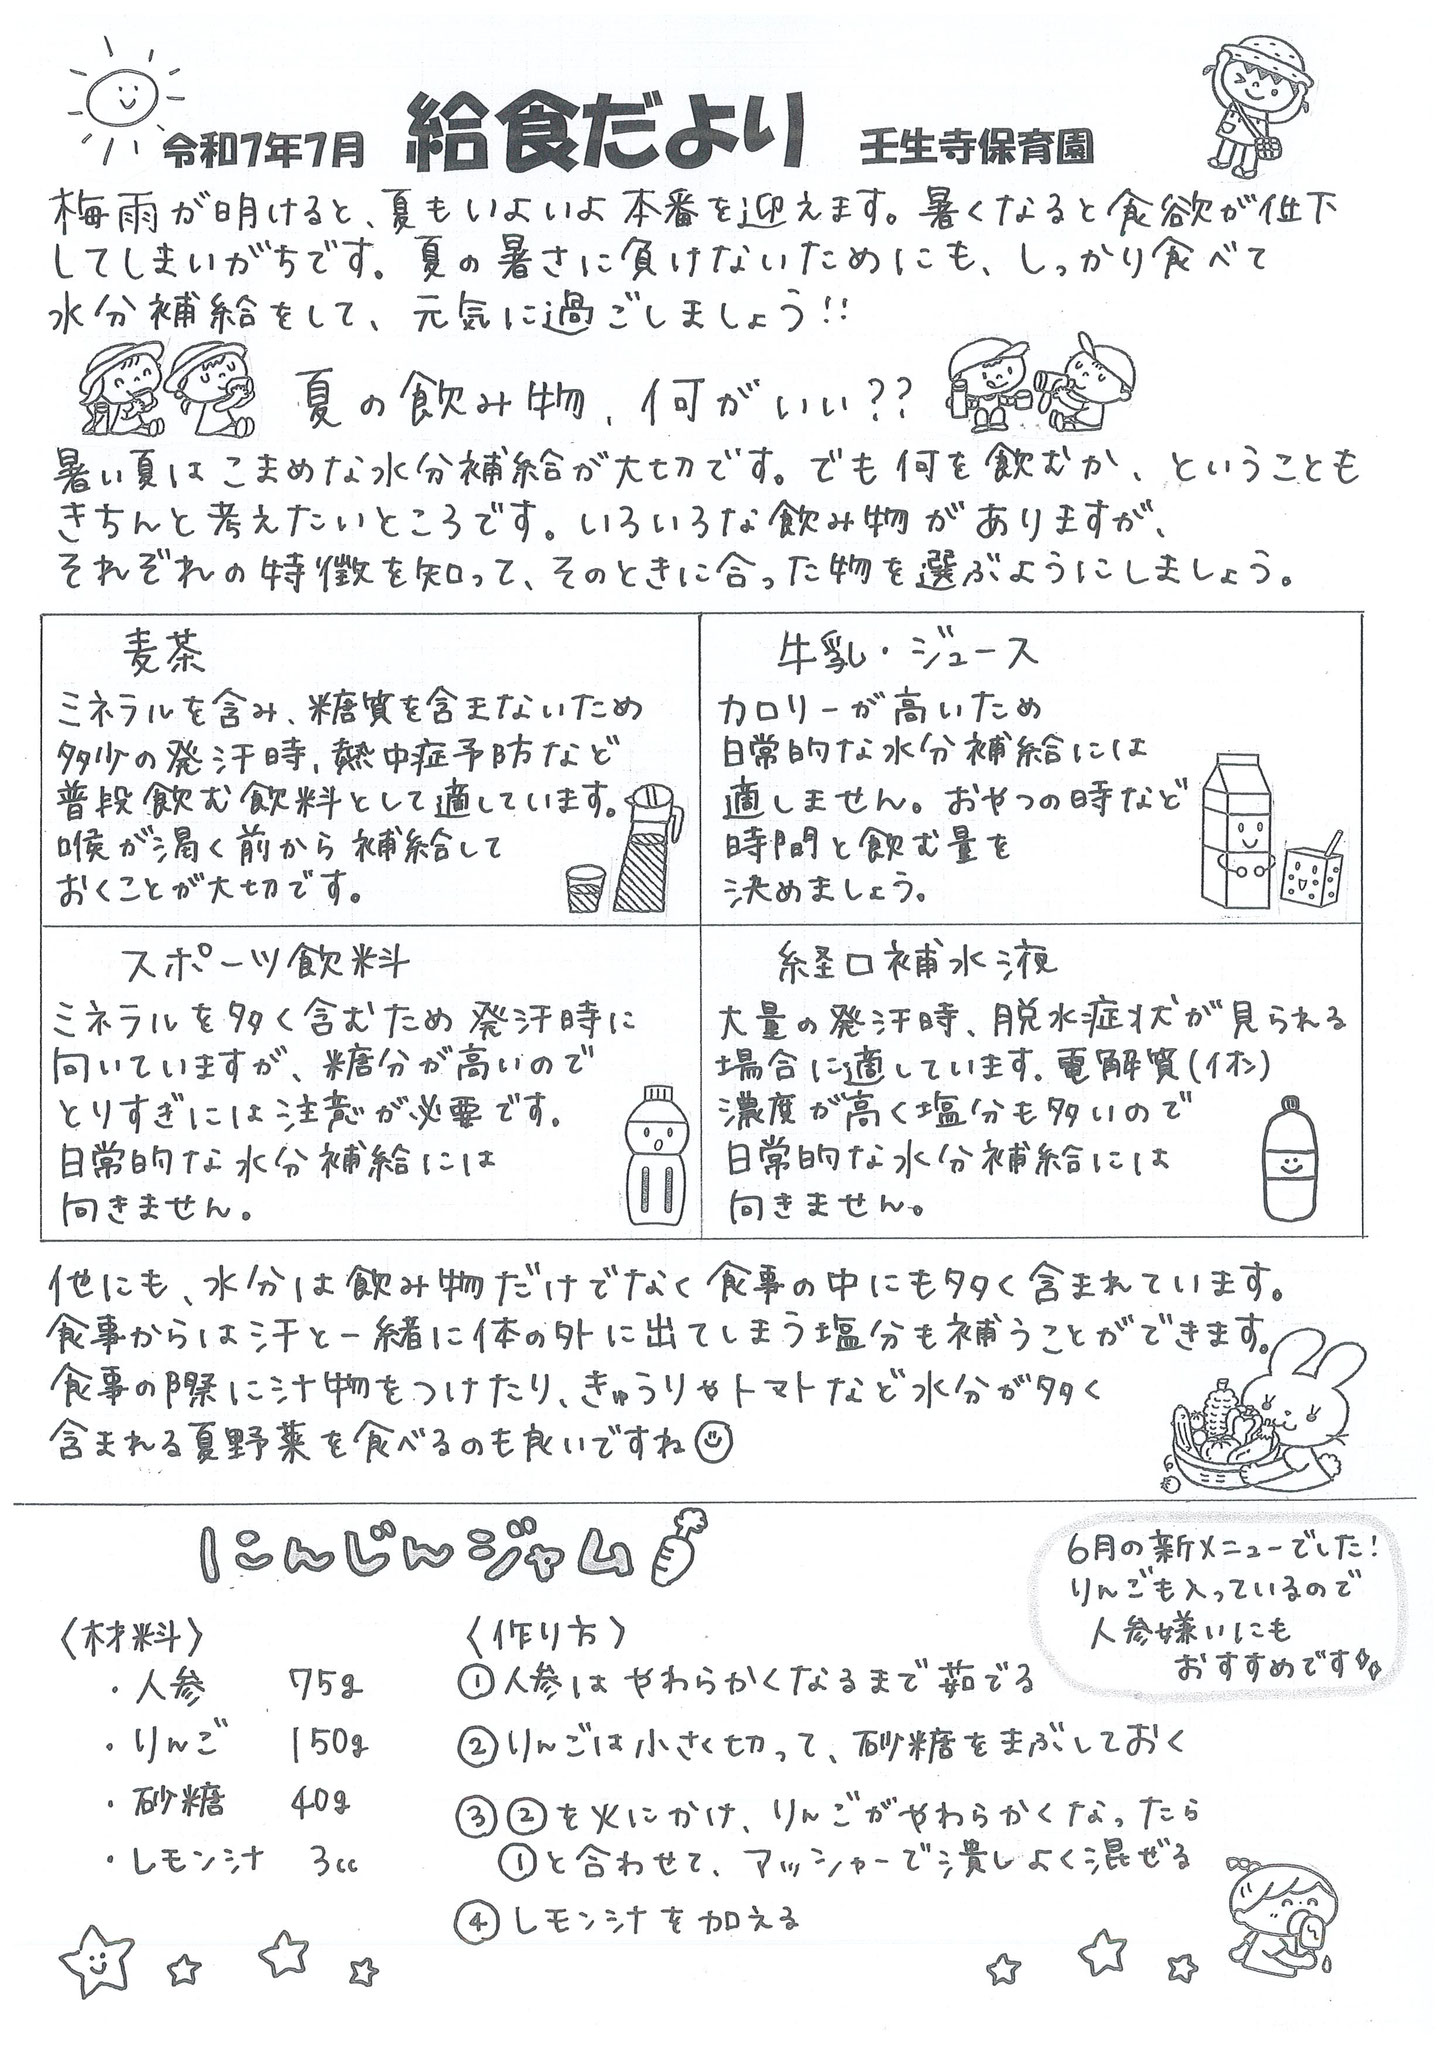 令和7年7月 給食だより 壬生寺保育園
梅雨が明けると、夏もいよいよ本番を迎えます。暑くなると食欲が低下
してしまいがちです。夏の暑さに負けないためにも、しっかり食べて
水分補給をして、元気に過ごしましょう!!
夏の飲み物、何がいい??
暑い夏はこまめな水分補給が大切です。でも何を飲むか、ということも
きちんと考えたいところです。いろいろな飲み物がありますが、
それぞれの特徴を知って、そのときに合った物を選ぶようにしましょう。
麦茶
ミネラルを含み、糖質を含まないため
多少の発汗時、熱中症予防など
普段飲む飲料として適しています。
喉が渇く前から補給して
おくことが大切です。
牛乳・ジュース
カロリーが高いため
日常的な水分補給には
適しません。おやつの時など
時間と飲む量を
決めましょう。
スポーツ飲料
ミネラルを多く含むため発汗時に
向いていますが、糖分が高いので
とりすぎには注意が必要です。
日常的な水分補給には
向きません。
経口補水液
大量の発汗時、脱水症状が見られる
場合に適しています。電解質(イオン)
濃度が高く塩分も多いので
日常的な水分補給には
向きません。
他にも、水分は飲み物だけでなく食事の中にも多く含まれています。
食事からは汗と一緒に体の外に出てしまう塩分も補うことができます。
食事の際に汁物をつけたり、きゅうりやトマトなど水分が多く
含まれる夏野菜を食べるのも良いですね
にんじんジャム
6月の新メニューでした!
りんごも入っているので
人参嫌いにも
おすすめです
〈材料〉
・人参 75g
・りんご 150g
・砂糖 40g
・レモン汁 3cc
〈作り方〉
①人参はやわらかくなるまで茹でる
②りんごは小さく切って、砂糖をまぶしておく
③②を火にかけ、りんごがやわらかくなったら
①と合わせて、マッシャーで潰しよく混ぜる
④レモン汁を加える